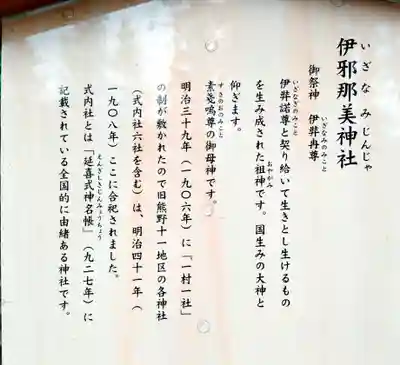 伊邪那美神社
いざなみじんじゃ
御祭神　伊弉冉尊
いざなみのみこと
伊弉諾尊と契り給いて生きとし生けるもの
いざなぎのみこと
を生み成された祖神です。国生みの大神と
おやがみ
仰ぎます。
素戔嗚尊の御母神です。
すさのおのみこと
明治三十九年（一九〇六年）に「一村一社」
の制が敷かれたので旧熊野十一地区の各神社
（式内社六社を含む）は、明治四十一年（
一九〇八年）ここに合祀されました。
式内社とは「延喜式神名帳」（九二七年）に
えんぎしきじんみょうちょう
記載されている全国的に由緒ある神社です。